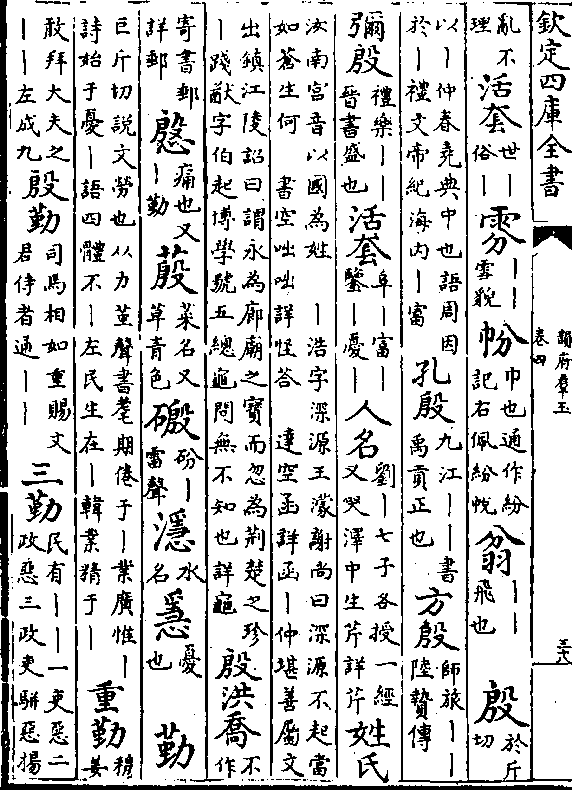 欽定四庫全書
韻府羣玉
卷四
三十八
亂不理 活套 世—俗— 雰 ——雪貌 帉 巾也通作紛記右佩紛帨 翁 ——飛也 殷 於斤切
以—仲春堯典中也語周因於—禮文帝紀海内—富 孔殷 九江——書禹貢正也 方殷 師旅——陸贄傳
彌殷 禮樂——晉書盛也 活套 阜—富—鑒—憂— 人名 劉—七子各授一經又哭澤中生芹詳芹 姓氏
汝南富音以國為姓 —浩字深源王濛謝尚曰深源不起當如蒼生何 書空咄咄詳怪答 達空函詳函—仲堪善屬文
出鎮江陵詔曰謂永為廊廟之寶而忽為荆楚之珍—踐猷字伯起博學號五總龜問無不知也詳龜 殷洪喬 不作
寄書郵詳郵 慇 痛也又—勤 蒑 菜名又草青色 磤 砏—雷聲 濦 水名 㥯 憂也 勤
巨斤切説文勞也从力堇聲書耄期倦于—業廣惟—詩始于憂—語四體不—左民生在—韓業精于— 重勤 穆姜
敢拜大夫之——左成九 殷勤 司馬相如重賜文君侍者通—— 三勤 民有———一吏惡二政惡三政吏駢惡揚